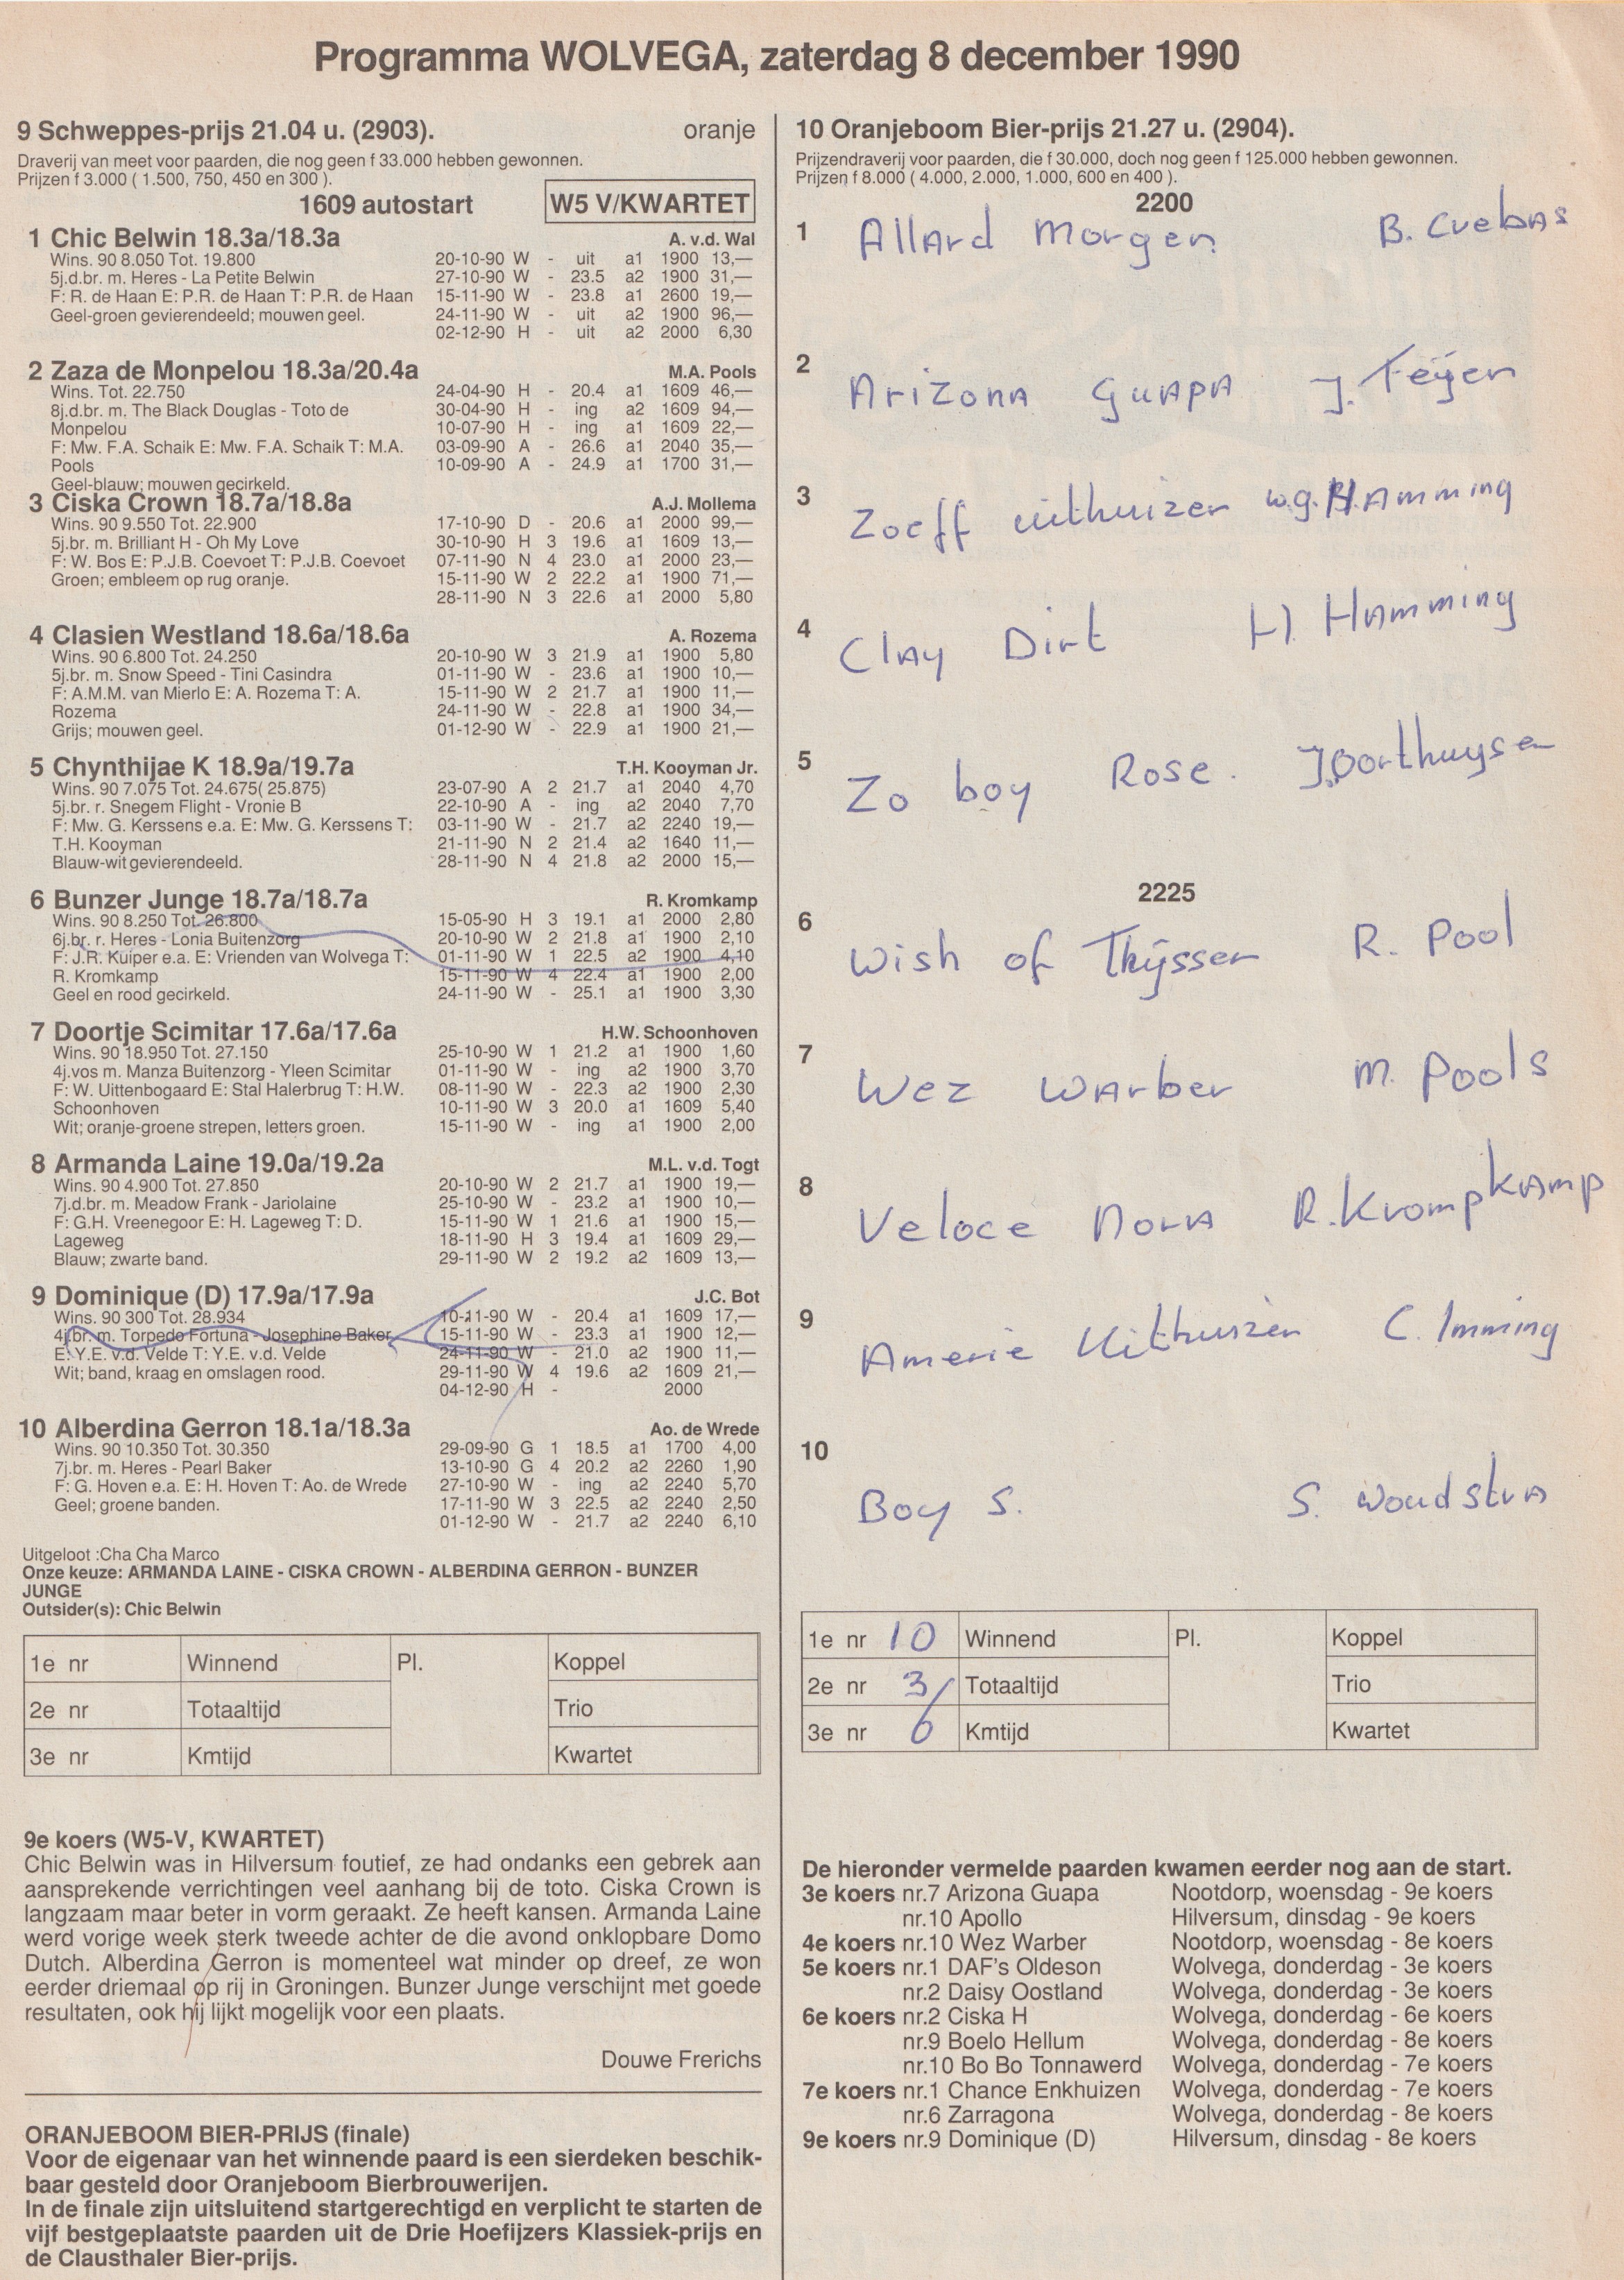 Programma WOLVEGA, zaterdag 8 december 1990
9 Schweppes-prijs 21.04 u. (2903). oranje
Draverij van meet voor paarden, die nog geen f 33.000 hebben gewonnen.
Prijzen f 3.000 ( 1.500, 750, 450 en 300 ).
1609 autostart W5 V/KWARTET
1 Chic Belwin 18.3a/18.3a A. v.d. Wal
Wins. 90 8.050 Tot. 19.800 20-10-90 W - uit a1 1900 13,—
5j.d.br. m. Heres - La Petite Belwin 27-10-90 W - 23.5 a2 1900 31,—
F: R. de Haan E: P.R. de Haan T: P.R. de Haan 15-11-90 W - 23.8 a1 2600 19,—
Geel-groen gevierendeeld; mouwen geel. 24-11-90 W - uit a2 1900 96,—
02-12-90 H - uit a2 2000 6,30
2 Zaza de Monpelou 18.3a/20.4a M.A. Pools
Wins. Tot. 22.750 24-04-90 H - 20.4 a1 1609 46,—
8j.d.br. m. The Black Douglas - Toto de 30-04-90 H - ing a2 1609 94,—
Monpelou 10-07-90 H - ing a1 1609 22,—
F: Mw. F.A. Schaik E: Mw. F.A. Schaik T: M.A. 03-09-90 A - 26.6 a1 2040 35,—
Pools 10-09-90 A - 24.9 a1 1700 31,—
Geel-blauw; mouwen gecirkeld.
3 Ciska Crown 18.7a/18.8a A.J. Mollema
Wins. 90 9.550 Tot. 22.900 17-10-90 D - 20.6 a1 2000 99,—
5j.br. m. Brilliant H - Oh My Love 30-10-90 H 3 19.6 a1 1609 13,—
F: W. Bos E: P.J.B. Coevoet T: P.J.B. Coevoet 07-11-90 N 4 23.0 a1 2000 23,—
Groen; embleem op rug oranje. 15-11-90 W 2 22.2 a1 1900 71,—
28-11-90 N 3 22.6 a1 2000 5,80
4 Clasien Westland 18.6a/18.6a A. Rozema
Wins. 90 6.800 Tot. 24.250 20-10-90 W 3 21.9 a1 1900 5,80
5j.br. m. Snow Speed - Tini Casindra 01-11-90 W - 23.6 a1 1900 10,—
F: A.M.M. van Mierlo E: A. Rozema T: A. 15-11-90 W 2 21.7 a1 1900 11,—
Rozema 24-11-90 W - 22.8 a1 1900 34,—
Grijs; mouwen geel. 01-12-90 W - 22.9 a1 1900 21,—
5 Chynthijae K 18.9a/19.7a T.H. Kooyman Jr.
Wins. 90 7.075 Tot. 24.675( 25.875) 23-07-90 A 2 21.7 a1 2040 4,70
5j.br. r. Snegem Flight - Vronie B 22-10-90 A - ing a2 2040 7,70
F: Mw. G. Kerssens e.a. E: Mw. G. Kerssens T: 03-11-90 W - 21.7 a2 2240 19,—
T.H. Kooyman 21-11-90 N 2 21.4 a2 1640 11,—
Blauw-wit gevierendeeld. 28-11-90 N 4 21.8 a2 2000 15,—
6 Bunzer Junge 18.7a/18.7a R. Kromkamp
Wins. 90 8.250 Tot. 26.800 15-05-90 H 3 19.1 a1 2000 2,80
6j.br. r. Heres - Lonia Buitenzorg 20-10-90 W 2 21.8 a1 1900 2,10
F: J.R. Kuiper e.a. E: Vrienden van Wolvega T: 01-11-90 W 1 22.5 a2 1900 4,10
R. Kromkamp 15-11-90 W 4 22.4 a1 1900 2,00
Geel en rood gecirkeld. 24-11-90 W - 25.1 a1 1900 3,30
7 Doortje Scimitar 17.6a/17.6a H.W. Schoonhoven
Wins. 90 18.950 Tot. 27.150 25-10-90 W 1 21.2 a1 1900 1,60
4j.vos m. Manza Buitenzorg - Yleen Scimitar 01-11-90 W - ing a2 1900 3,70
F: W. Uittenbogaard E: Stal Halerbrug T: H.W. 08-11-90 W - 22.3 a2 1900 2,30
Schoonhoven 10-11-90 W 3 20.0 a1 1609 5,40
Wit; oranje-groene strepen, letters groen. 15-11-90 W - ing a1 1900 2,00
8 Armanda Laine 19.0a/19.2a M.L. v.d. Togt
Wins. 90 4.900 Tot. 27.850 20-10-90 W 2 21.7 a1 1900 19,—
7j.d.br. m. Meadow Frank - Jariolaine 25-10-90 W - 23.2 a1 1900 10,—
F: G.H. Vreenegoor E: H. Lageweg T: D. 15-11-90 W 1 21.6 a1 1900 15,—
Lageweg 18-11-90 H 3 19.4 a1 1609 29,—
Blauw; zwarte band. 29-11-90 W 2 19.2 a2 1609 13,—
9 Dominique (D) 17.9a/17.9a J.C. Bot
Wins. 90 300 Tot. 28.934 10-11-90 W - 20.4 a1 1609 17,—
4j.br. m. Torpedo Fortuna - Josephine Baker 15-11-90 W - 23.3 a1 1900 12,—
E: Y.E. v.d. Velde T: Y.E. v.d. Velde 24-11-90 W - 21.0 a2 1900 11,—
Wit; band, kraag en omslagen rood. 29-11-90 W 4 19.6 a2 1609 21,—
04-12-90 H - 2000
10 Alberdina Gerron 18.1a/18.3a Ao. de Wrede
Wins. 90 10.350 Tot. 30.350 29-09-90 G 1 18.5 a1 1700 4,00
7j.br. m. Heres - Pearl Baker 13-10-90 G 4 20.2 a2 2260 1,90
F: G. Hoven e.a. E: H. Hoven T: Ao. de Wrede 27-10-90 W - ing a2 2240 5,70
Geel; groene banden. 17-11-90 W 3 22.5 a2 2240 2,50
01-12-90 W - 21.7 a2 2240 6,10
Uitgeloot :Cha Cha Marco
Onze keuze: ARMANDA LAINE - CISKA CROWN - ALBERDINA GERRON - BUNZER
JUNGE
Outsider(s): Chic Belwin
1e nr Winnend Pl. Koppel
2e nr Totaaltijd Trio
3e nr Kmtijd Kwartet
9e koers (W5-V, KWARTET)
Chic Belwin was in Hilversum foutief, ze had ondanks een gebrek aan
aansprekende verrichtingen veel aanhang bij de toto. Ciska Crown is
langzaam maar beter in vorm geraakt. Ze heeft kansen. Armanda Laine
werd vorige week sterk tweede achter de die avond onklopbare Domo
Dutch. Alberdina Gerron is momenteel wat minder op dreef, ze won
eerder driemaal op rij in Groningen. Bunzer Junge verschijnt met goede
resultaten, ook hij lijkt mogelijk voor een plaats.
Douwe Frerichs
ORANJEBOOM BIER-PRIJS (finale)
Voor de eigenaar van het winnende paard is een sierdeken beschik-
baar gesteld door Oranjeboom Bierbrouwerijen.
In de finale zijn uitsluitend startgerechtigd en verplicht te starten de
vijf bestgeplaatste paarden uit de Drie Hoefijzers Klassiek-prijs en
de Clausthaler Bier-prijs.
10 Oranjeboom Bier-prijs 21.27 u. (2904).
Prijzendraverij voor paarden, die f 30.000, doch nog geen f 125.000 hebben gewonnen.
Prijzen f 8.000 ( 4.000, 2.000, 1.000, 600 en 400 ).
2200
1 Allard Morgen B. Crebas
2 Arizona Guapa J. Feijen
3 Zoeff uithuizer w.g. Hamming
4 Clay Dirt H Hamming
5 Zo boy Rose. J Oorthuysen
2225
6 Wish of Thijssen R. Pool
7 Wez Warber M. Pools
8 Veloce Nora R. Krompkamp
9 Amerie Uithuizen C. Imming
10 Boy S. S. Woudstra
1e nr 10 Winnend Pl. Koppel
2e nr 3 Totaaltijd Trio
3e nr 6 Kmtijd Kwartet
De hieronder vermelde paarden kwamen eerder nog aan de start.
3e koers nr.7 Arizona Guapa Nootdorp, woensdag - 9e koers
nr.10 Apollo Hilversum, dinsdag - 9e koers
4e koers nr.10 Wez Warber Nootdorp, woensdag - 8e koers
5e koers nr.1 DAF's Oldeson Wolvega, donderdag - 3e koers
nr.2 Daisy Oostland Wolvega, donderdag - 3e koers
6e koers nr.2 Ciska H Wolvega, donderdag - 6e koers
nr.9 Boelo Hellum Wolvega, donderdag - 8e koers
nr.10 Bo Bo Tonnawerd Wolvega, donderdag - 7e koers
7e koers nr.1 Chance Enkhuizen Wolvega, donderdag - 7e koers
nr.6 Zarragona Wolvega, donderdag - 8e koers
9e koers nr.9 Dominique (D) Hilversum, dinsdag - 8e koers